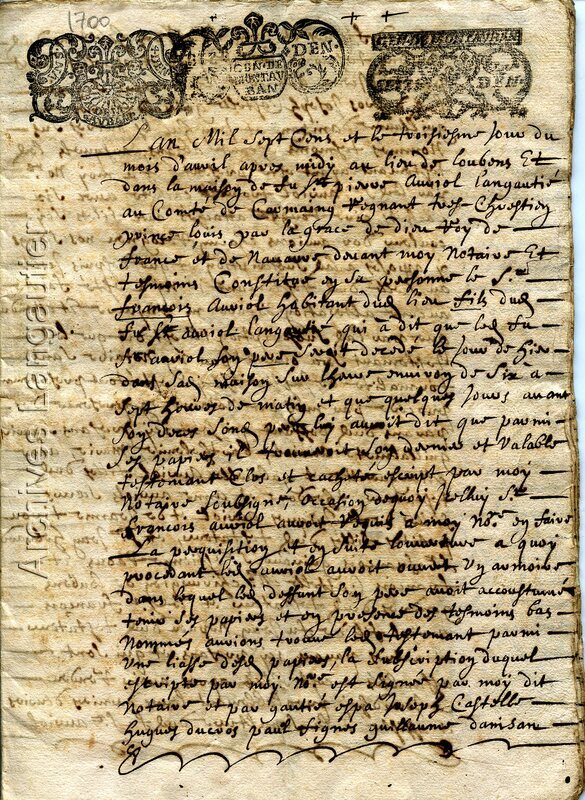 1700
GEN. DE
MONTAU
BAN
DEN.
DEN.
Lan Mil Sept Cens et le troisiesme Jour du
mois d'avril apres midy au lieu de loubens Et
dans la maison de fu Sr pierre Auriol langautié
au Comté de Carmaing Regnant tres Chrestien
prince louis par la grace de dieu Roy de
france et de Navarre devant moy Notaire Et
tesmoins Constitué en sa personne le Sr
francois Auriol habitant dud lieu fils dud
fu Sr auriol langautié qui à dit que led fu
Sr auriol son pere seroit decedé le Jour de hier
dans sad maison sur lheure environ de six à
sept heures de matin et que quelques Jours avant
son deces sond pere luy auroit dit que parmi
ses papiers il trouveroit son dernier et Valable
testemant Clos et cacheté escript par moy
Notaire soubsigné, occasion dequoy Icelluy Sr
francois auriol auroit Requis à moy Nore en faire
La perquisition et en suite louverture a quoy
procedant led auriol auroit ouvert Un armoire
dans lequel led deffant son pere avoit accoustumé
tenir ses papiers et en presence des tesmoins bas
Nommés aurions trouvé led testemant parmi
Une liasse desd papiers, la subscription duquel
escripte par moy Nore est signée par moy dit
Notaire et par gautié espa Joseph Castelle
hugues ducros paul Vignes guillaume danisan
Et
Archives Langautier